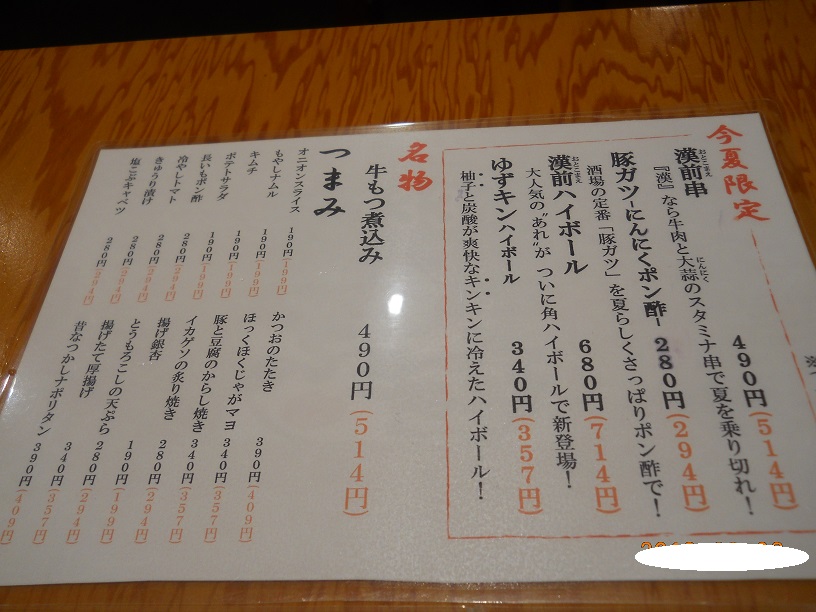 今夏限定
漢前串 490円(514円)
おとこまえ
『漢』なら牛肉と大蒜のスタミナ串で夏を乗り切れ！
にんにく
豚ガツ-にんにくポン酢- 280円(294円)
酒場の定番「豚ガツ」を夏らしくさっぱりポン酢で！
漢前ハイボール 680円(714円)
おとこまえ
大人気の〝あれ〟が ついに角ハイボールで新登場！
ゆずキンハイボール 340円(357円)
柚子と炭酸が爽快なキンキンに冷えたハイボール！
名物
牛もつ煮込み 490円(514円)
つまみ
オニオンスライス 190円(199円)
もやしナムル 190円(199円)
キムチ 190円(199円)
ポテトサラダ 190円(199円)
長いもポン酢 280円(294円)
冷やしトマト 280円(294円)
きゅうり漬け 280円(294円)
塩こぶキャベツ 280円(294円)
かつおのたたき 390円(409円)
ほっくほくじゃがマヨ 340円(357円)
豚と豆腐のからし焼き 340円(357円)
イカゲソの炙り焼き 280円(294円)
揚げ銀杏 190円(199円)
とうもろこしの天ぷら 280円(294円)
揚げたて厚揚げ 340円(357円)
昔なつかしナポリタン 390円(409円)